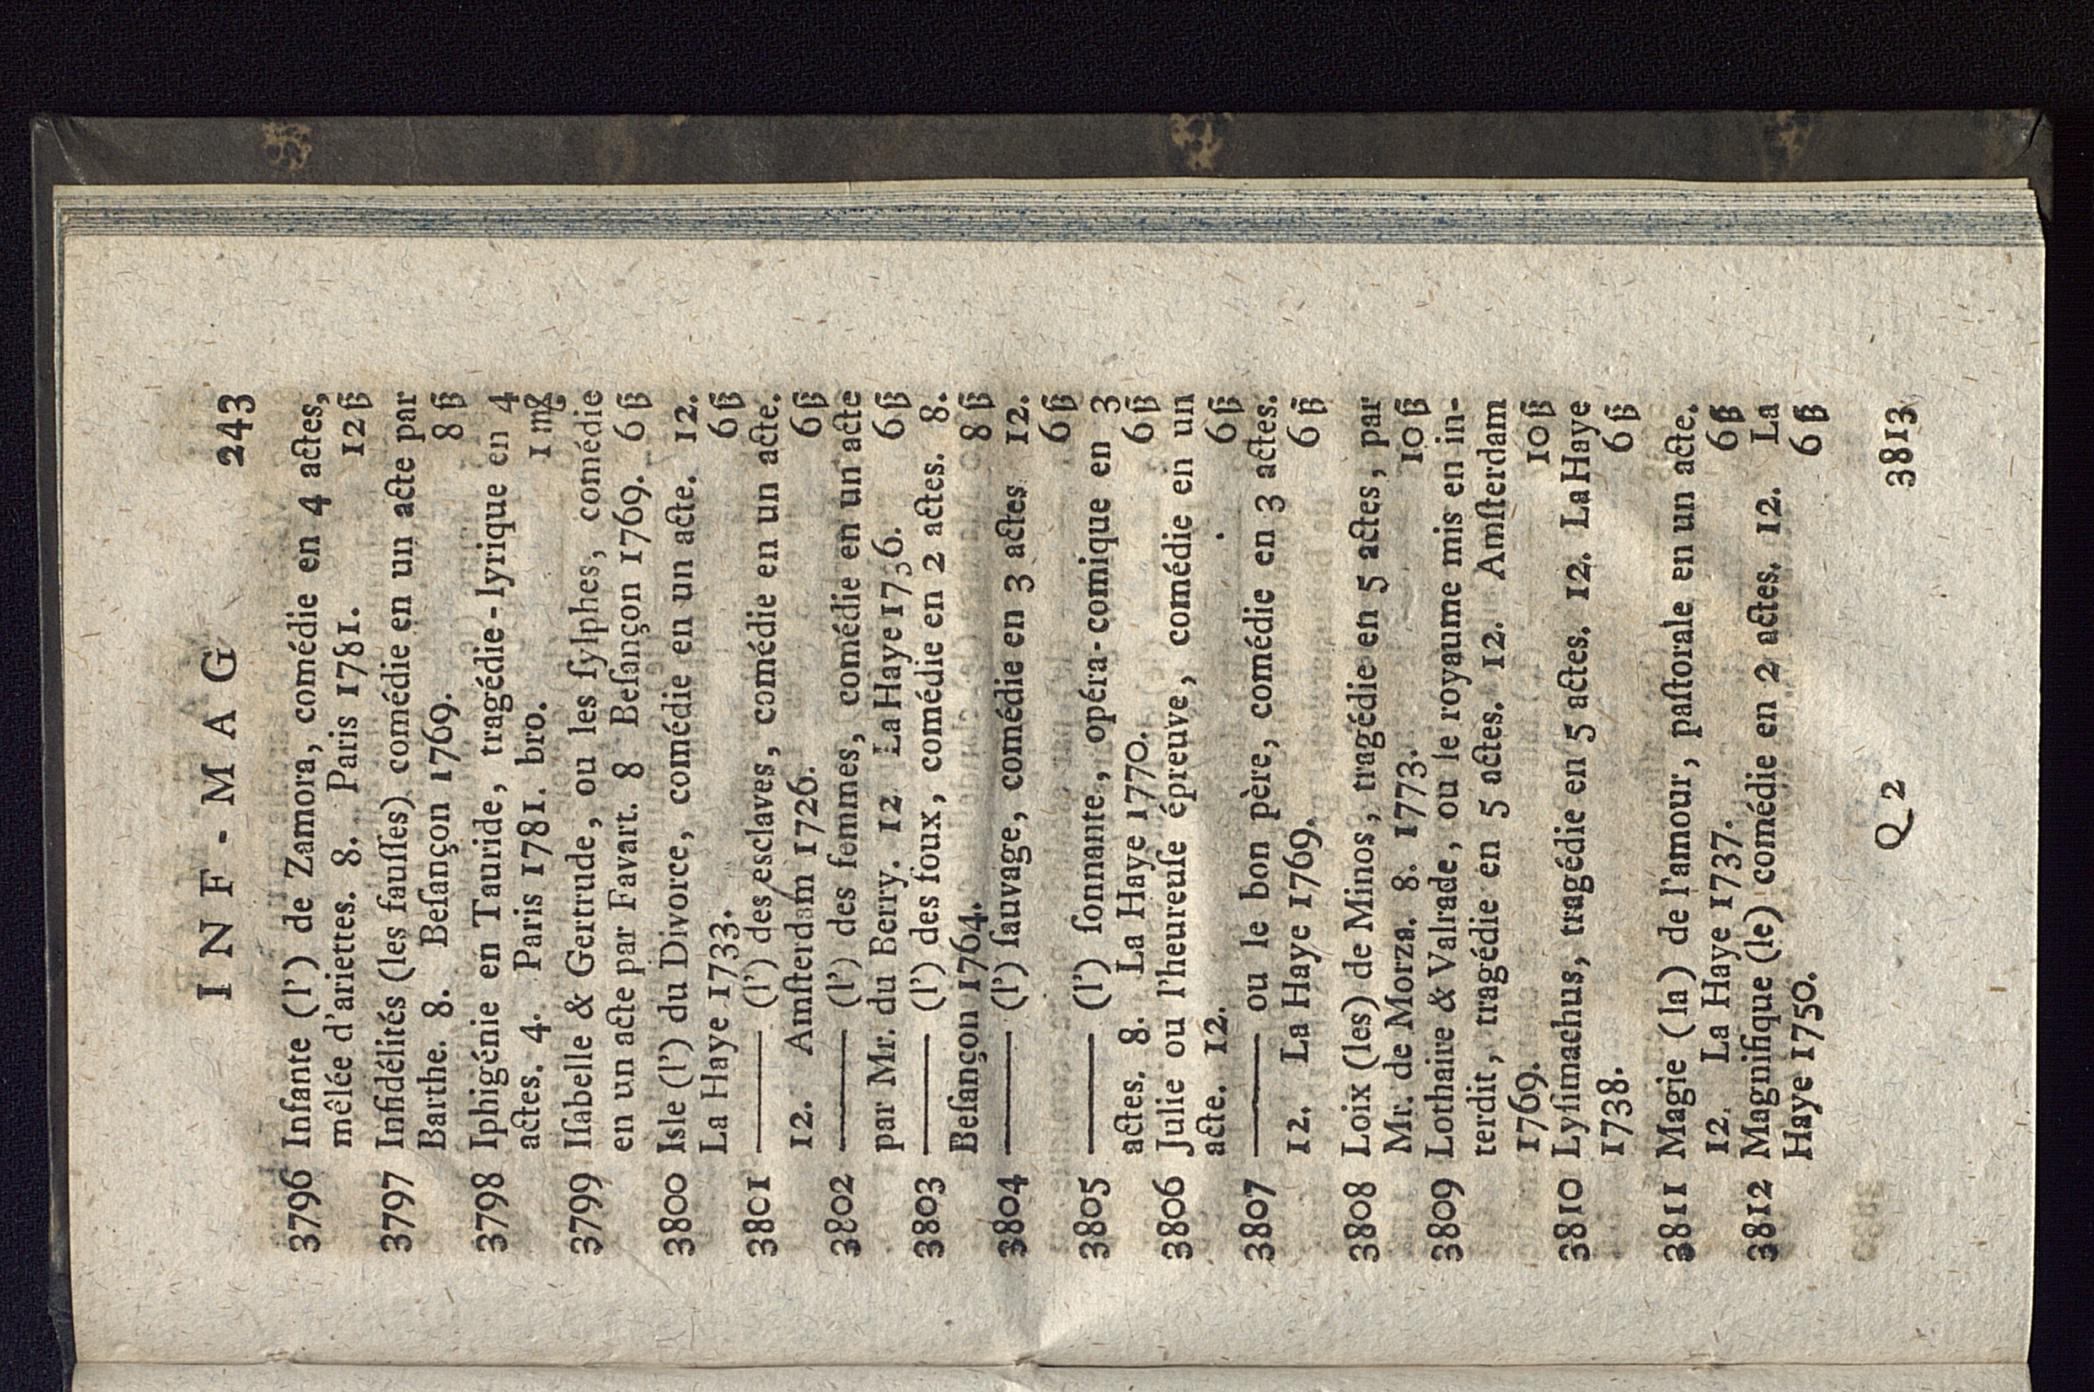 INF-MAG 243
3796 Infante (l') de Zamora, comédie en 4 actes,
mêlée d'ariettes. 8. Paris 1781. 12 ß
3797 Infidélités (les fauſſes) comédie en un acte par
Barthe. 8. Beſançon 1769. 8 ß
3798 Iphigénie en Tauride, tragédie-lyrique en 4
actes. 4. Paris 1781. bro. 1 mß
3799 Iſabelle & Gertrude, ou les ſylphes, comédie
en un acte par Favart. 8 Beſançon 1769. 6 ß
3800 Isle (l') du Divorce, comédie en un acte. 12.
La Haye 1733. 6 ß
3801 —— (l') des eſclaves, comédie en un acte.
12. Amſterdam 1726. 6 ß
3802 —— (l') des femmes, comédie en un acte
par Mr. du Berry. 12 La Haye 1736. 6 ß
3803 —— (l') des foux, comédie en 2 actes. 8.
Beſançon 1764. 8 ß
3804 —— (l') ſauvage, comédie en 3 actes 12.
6 ß
3805 —— (l') ſonnante, opéra-comique en 3
actes. 8. La Haye 1770. 6 ß
3806 Julie ou l'heureuſe épreuve, comédie en un
acte. 12. 6 ß
3807 —— ou le bon père, comédie en 3 actes.
12. La Haye 1769. 6 ß
3808 Loix (les) de Minos, tragédie en 5 actes, par
Mr. de Morza. 8. 1773. 10 ß
3809 Lothaire & Valrade, ou le royaume mis en in-
terdit, tragédie en 5 actes. 12. Amſterdam
1769. 10 ß
3810 Lyſimachus, tragédie en 5 actes. 12. La Haye
1738. 6 ß
3811 Magie (la) de l'amour, paſtorale en un acte.
12. La Haye 1737. 6 ß
3812 Magnifique (le) comédie en 2 actes. 12. La
Haye 1750. 6 ß
Q 2 3813